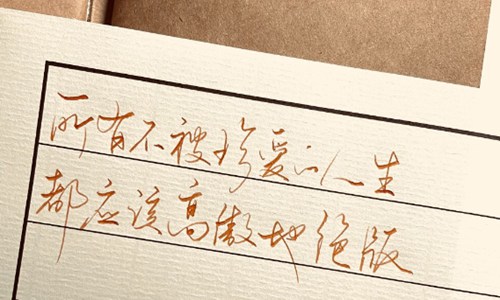 所有不被珍爱的人生
都应该高傲地绝版